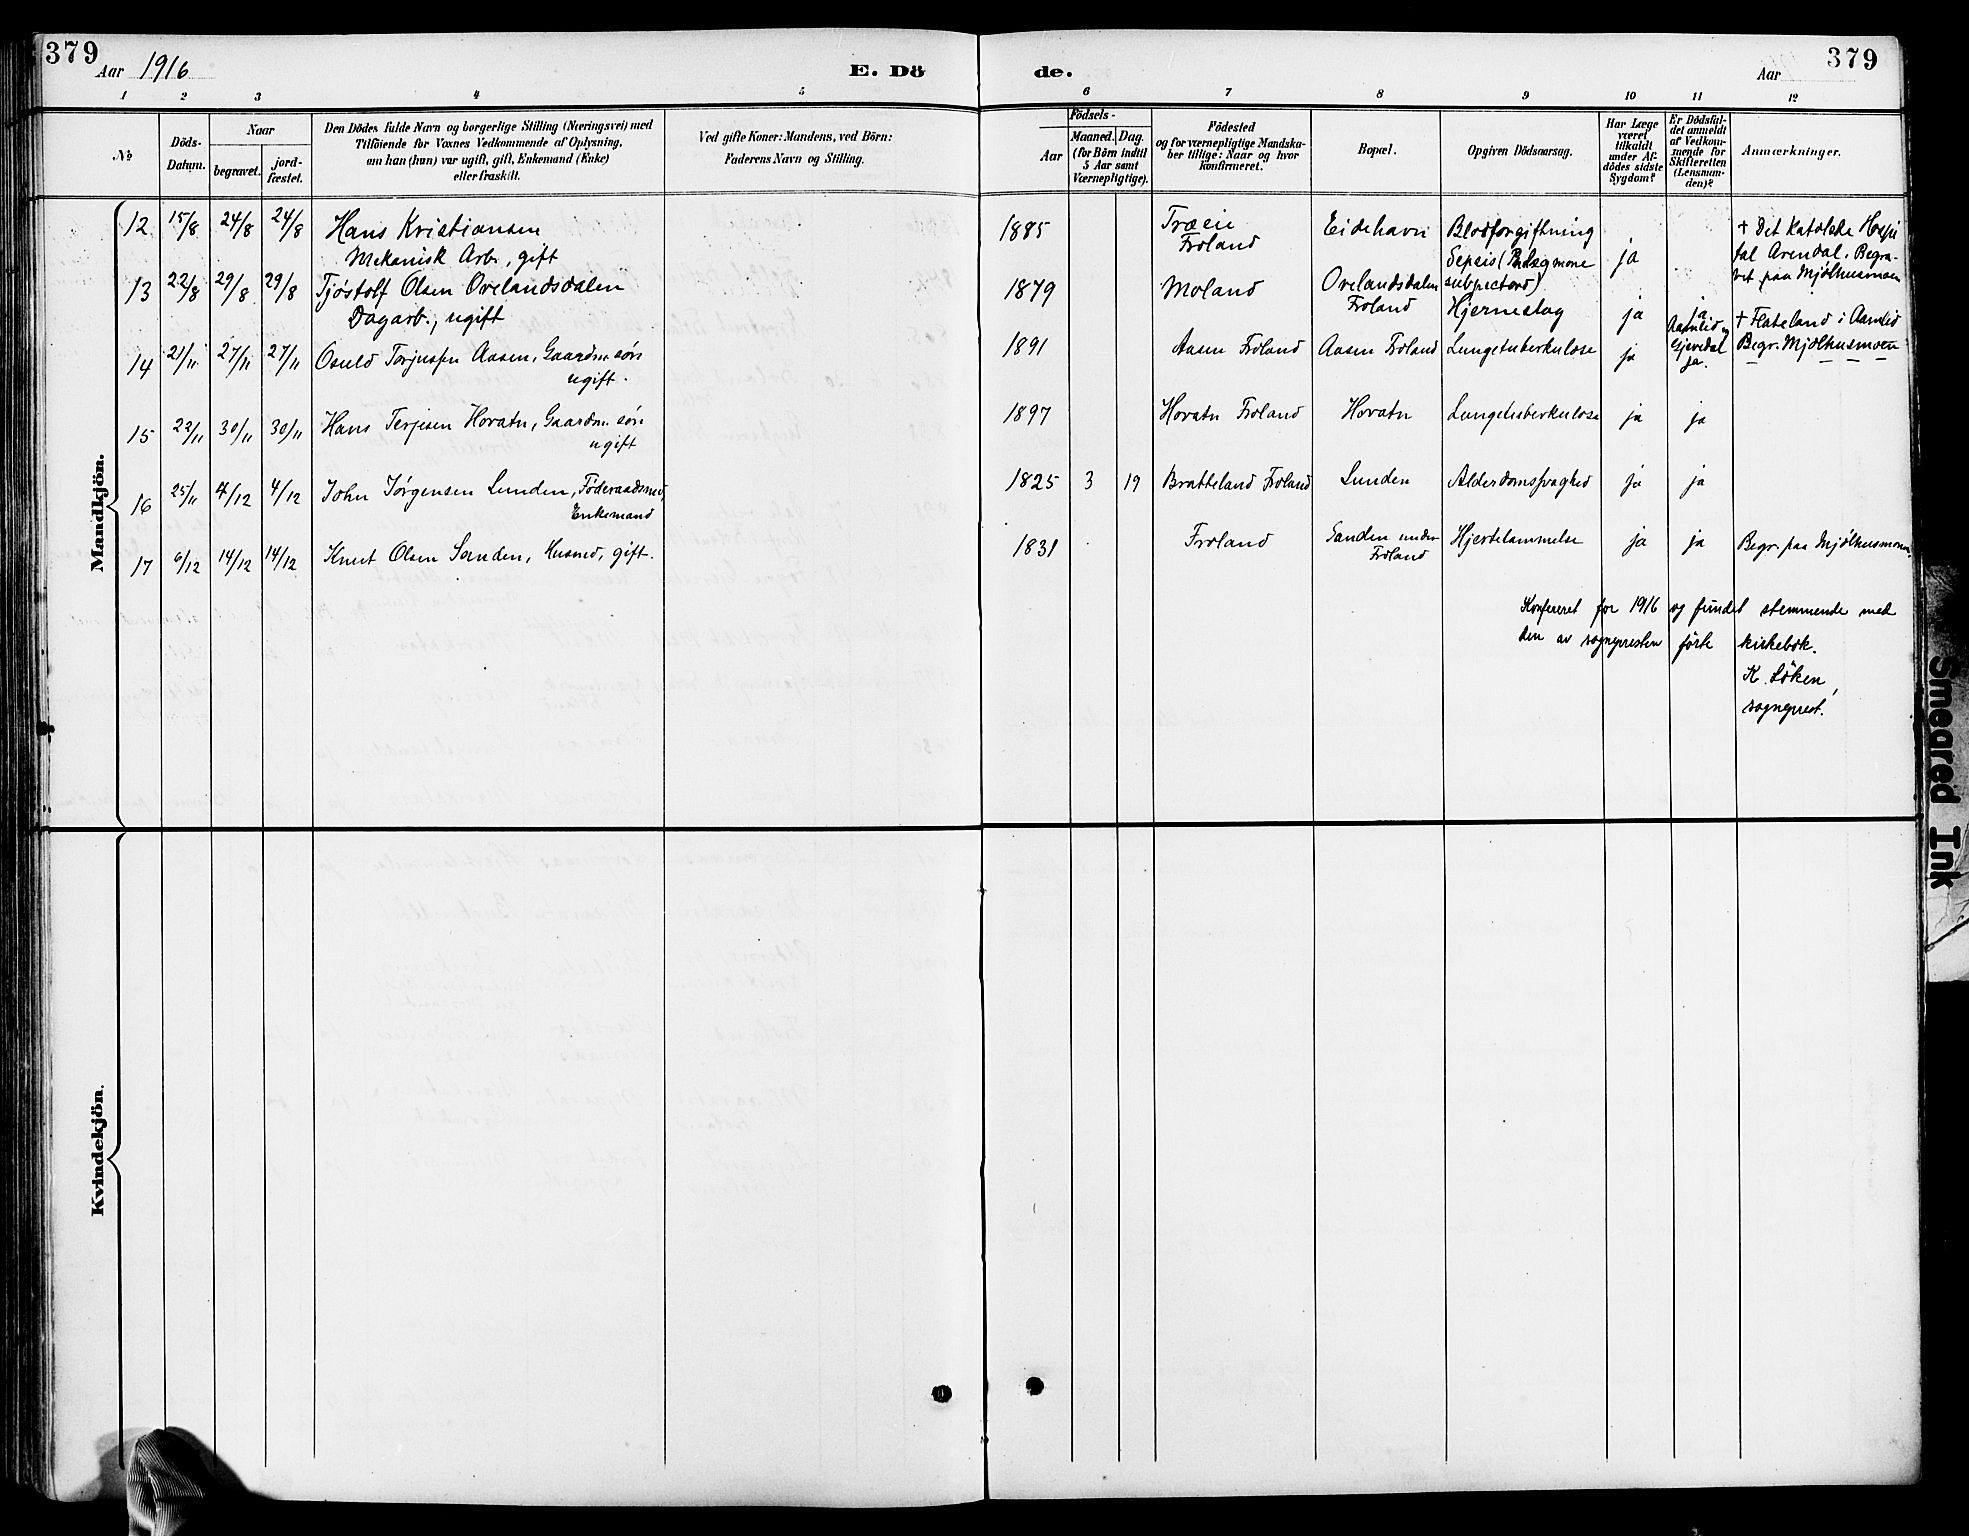 379
Aar 1916
E. Dö
de.
Aar
379
1 2 3 4 5 6 7 8 9 10 11 12
No
Döds-
Datum.
Naar
begravet.
jord-
fæstet.
Den Dödes fulde Navn og borgerlige Stilling (Næringsvei) med
Tilföiende for Voxnes Vedkommende af Oplysning,
om han (hun) var ugift, gift, Enkemand (Enke)
eller fraskilt.
Ved gifte Koner: Mandens, ved Börn:
Faderens Navn og Stilling.
Födsels-
Aar
Maaned. Dag.
(for Börn indtil
5 Aar samt
Værnepligtige).
Födested
og for værnepligtige Mandska-
ber tillige: Naar og hvor
konfirmeret.
Bopæl.
Opgiven Dödsaarsag.
Har Læge
været
tilkaldt
under Af-
dödes sidste
Sygdom?
Er Dödsfal-
det anmeldt
af Vedkom-
mende for
Skifteretten
(Lensman-
den)?
Anmærkninger.
Mandkjön.
12 15/8 24/8 24/8 Hans Kristiansen
Mekanisk Arb., gift
1885 Træeie
Froland
Eidehavn
Blodforgiftning
Sepsis (
subpectoral)
ja
+ Det katolske Hospi
tal Arendal. Begra-
vet paa Mjølhusmoen
13 22/8 29/8 29/8 Tjøstolf Olsen Ovelandsdalen
Dagarb., ugift
1879 Moland
Ovelandsdalen
Froland
Hjerneslag
ja
ja
Aamlid og
Gjøvdal
+ Flateland i Aamlid
Begr. Mjølhusmoen
14 21/11 27/11 27/11 Osuld Torjussen Aasen, Gaardm. søn
ugift.
1891 Aasen Froland Aasen Froland Lungetuberkulose ja ja.
15 22/11 30/11 30/11 Hans Terjesen Hovatn, Gaardm. søn
ugift
1897 Hovatn Froland Hovatn Lungetuberkulose ja ja
16 25/11 4/12 4/12 John Jørgensen Lunden, Føderaadsmd,
Enkemand
1825 3 19 Bratteland Froland Lunden Alderdomssvaghed ja ja
17 6/12 14/12 14/12 Knut Olsen Sanden, Husmd, gift.
1831 Froland Sanden under
Froland
Hjertelammelse ja ja Begr. paa Mjølhusmoen.
Konfereret for 1916 og fundet stemmende med
den av sognepresten førte kirkebok.
K. Löken,
sogneprest.
Kvindekjön.
Smeared Ink